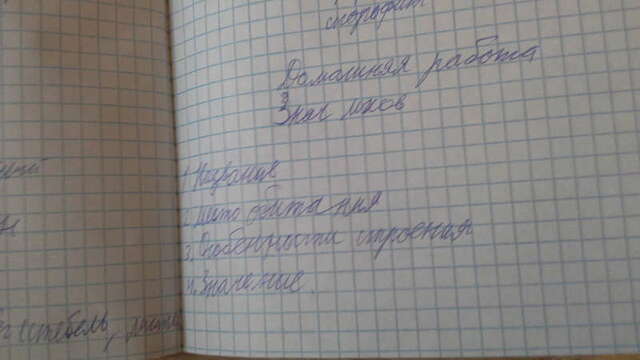 спорофит
Домашняя работа
Знач мхов
1. Название
2. Место обитания
3. Особенности строения
4. Значение.
стебель,